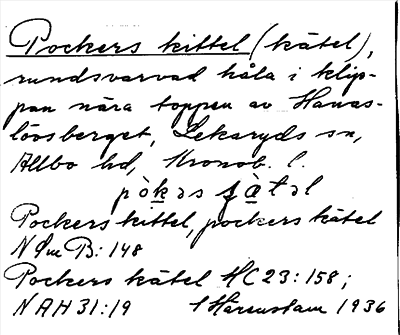 Pockers kittel (kätel),
rundsvarvad håla i klip-
pan nära toppen av Hanas-
lövsberget, Lekaryds sn,
Allbo hd, Kronob. l.
pòkəs ʃàtəl
Pockerskittel, pockers kätel
NSmB: 148
Pockers kätel HC23:158;
NAH31:19 Härenstam 1936